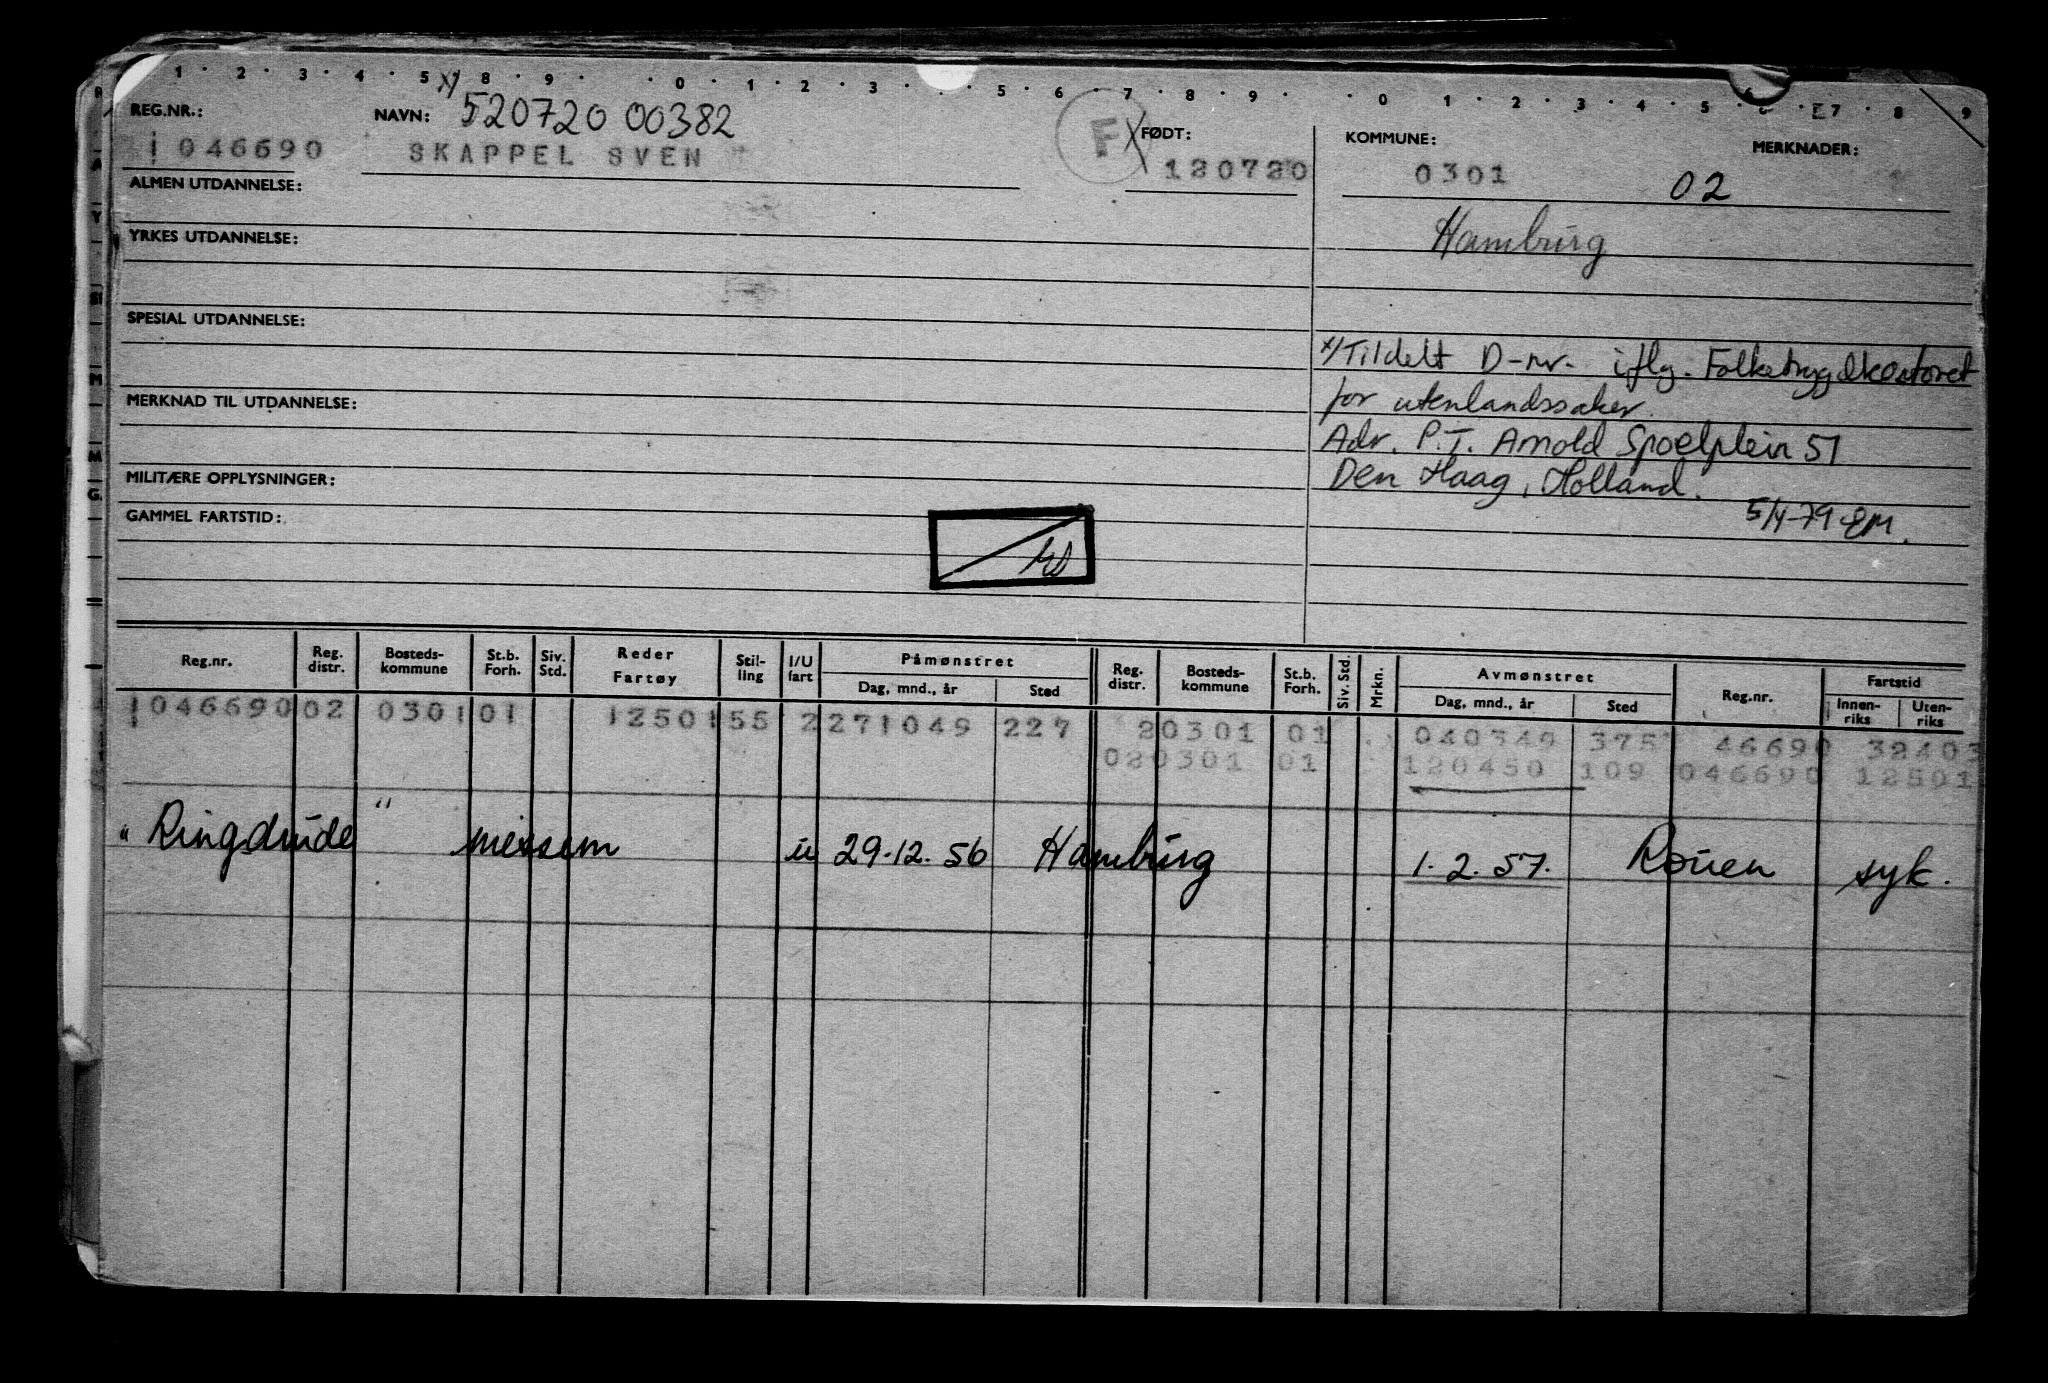 1 · 2 · 3 · 4 · 5 8 · 9 · · 0 · 1 · 2 · 3 · 5 · 6 · 7 · 8 · 9 · · 0 · 1 · 2 · 3 · 4 · 5 · 6 · 7 · 8 9
REG.NR.: NAVN: x) 520720 00382 F X FØDT: KOMMUNE: MERKNADER:
046690 SKAPPEL SVEN 120720 0301 02
ALMEN UTDANNELSE:
YRKES UTDANNELSE: Hamburg
SPESIAL UTDANNELSE:
x) Tildelt D-nr. iflg. Folketrygdkontoret
MERKNAD TIL UTDANNELSE: for utenlandssaker.
Adr. P.T. Arnold Spoelplein 51
MILITÆRE OPPLYSNINGER: Den Haag, Holland.
GAMMEL FARTSTID: 5/4-79 EM.
Reg.nr. Reg. distr. Bosteds-kommune St.b. Forh. Siv. Std. Reder Fartøy Stil-ling I/U fart Påmønstret Dag, mnd., år Sted Reg. distr. Bosteds-kommune St.b. Forh. Siv. Std. Mrkn. Avmønstret Dag, mnd., år Sted Reg.nr. Fartstid Innen-riks Uten-riks
046690 02 0301 01 12501 55 2 271049 227 20301 01 040349 375 46690 32403
020301 01 120450 109 046690 12501
"Ringdrude" messem u 29.12.56 Hamburg 1.2.57. Rouen syk.